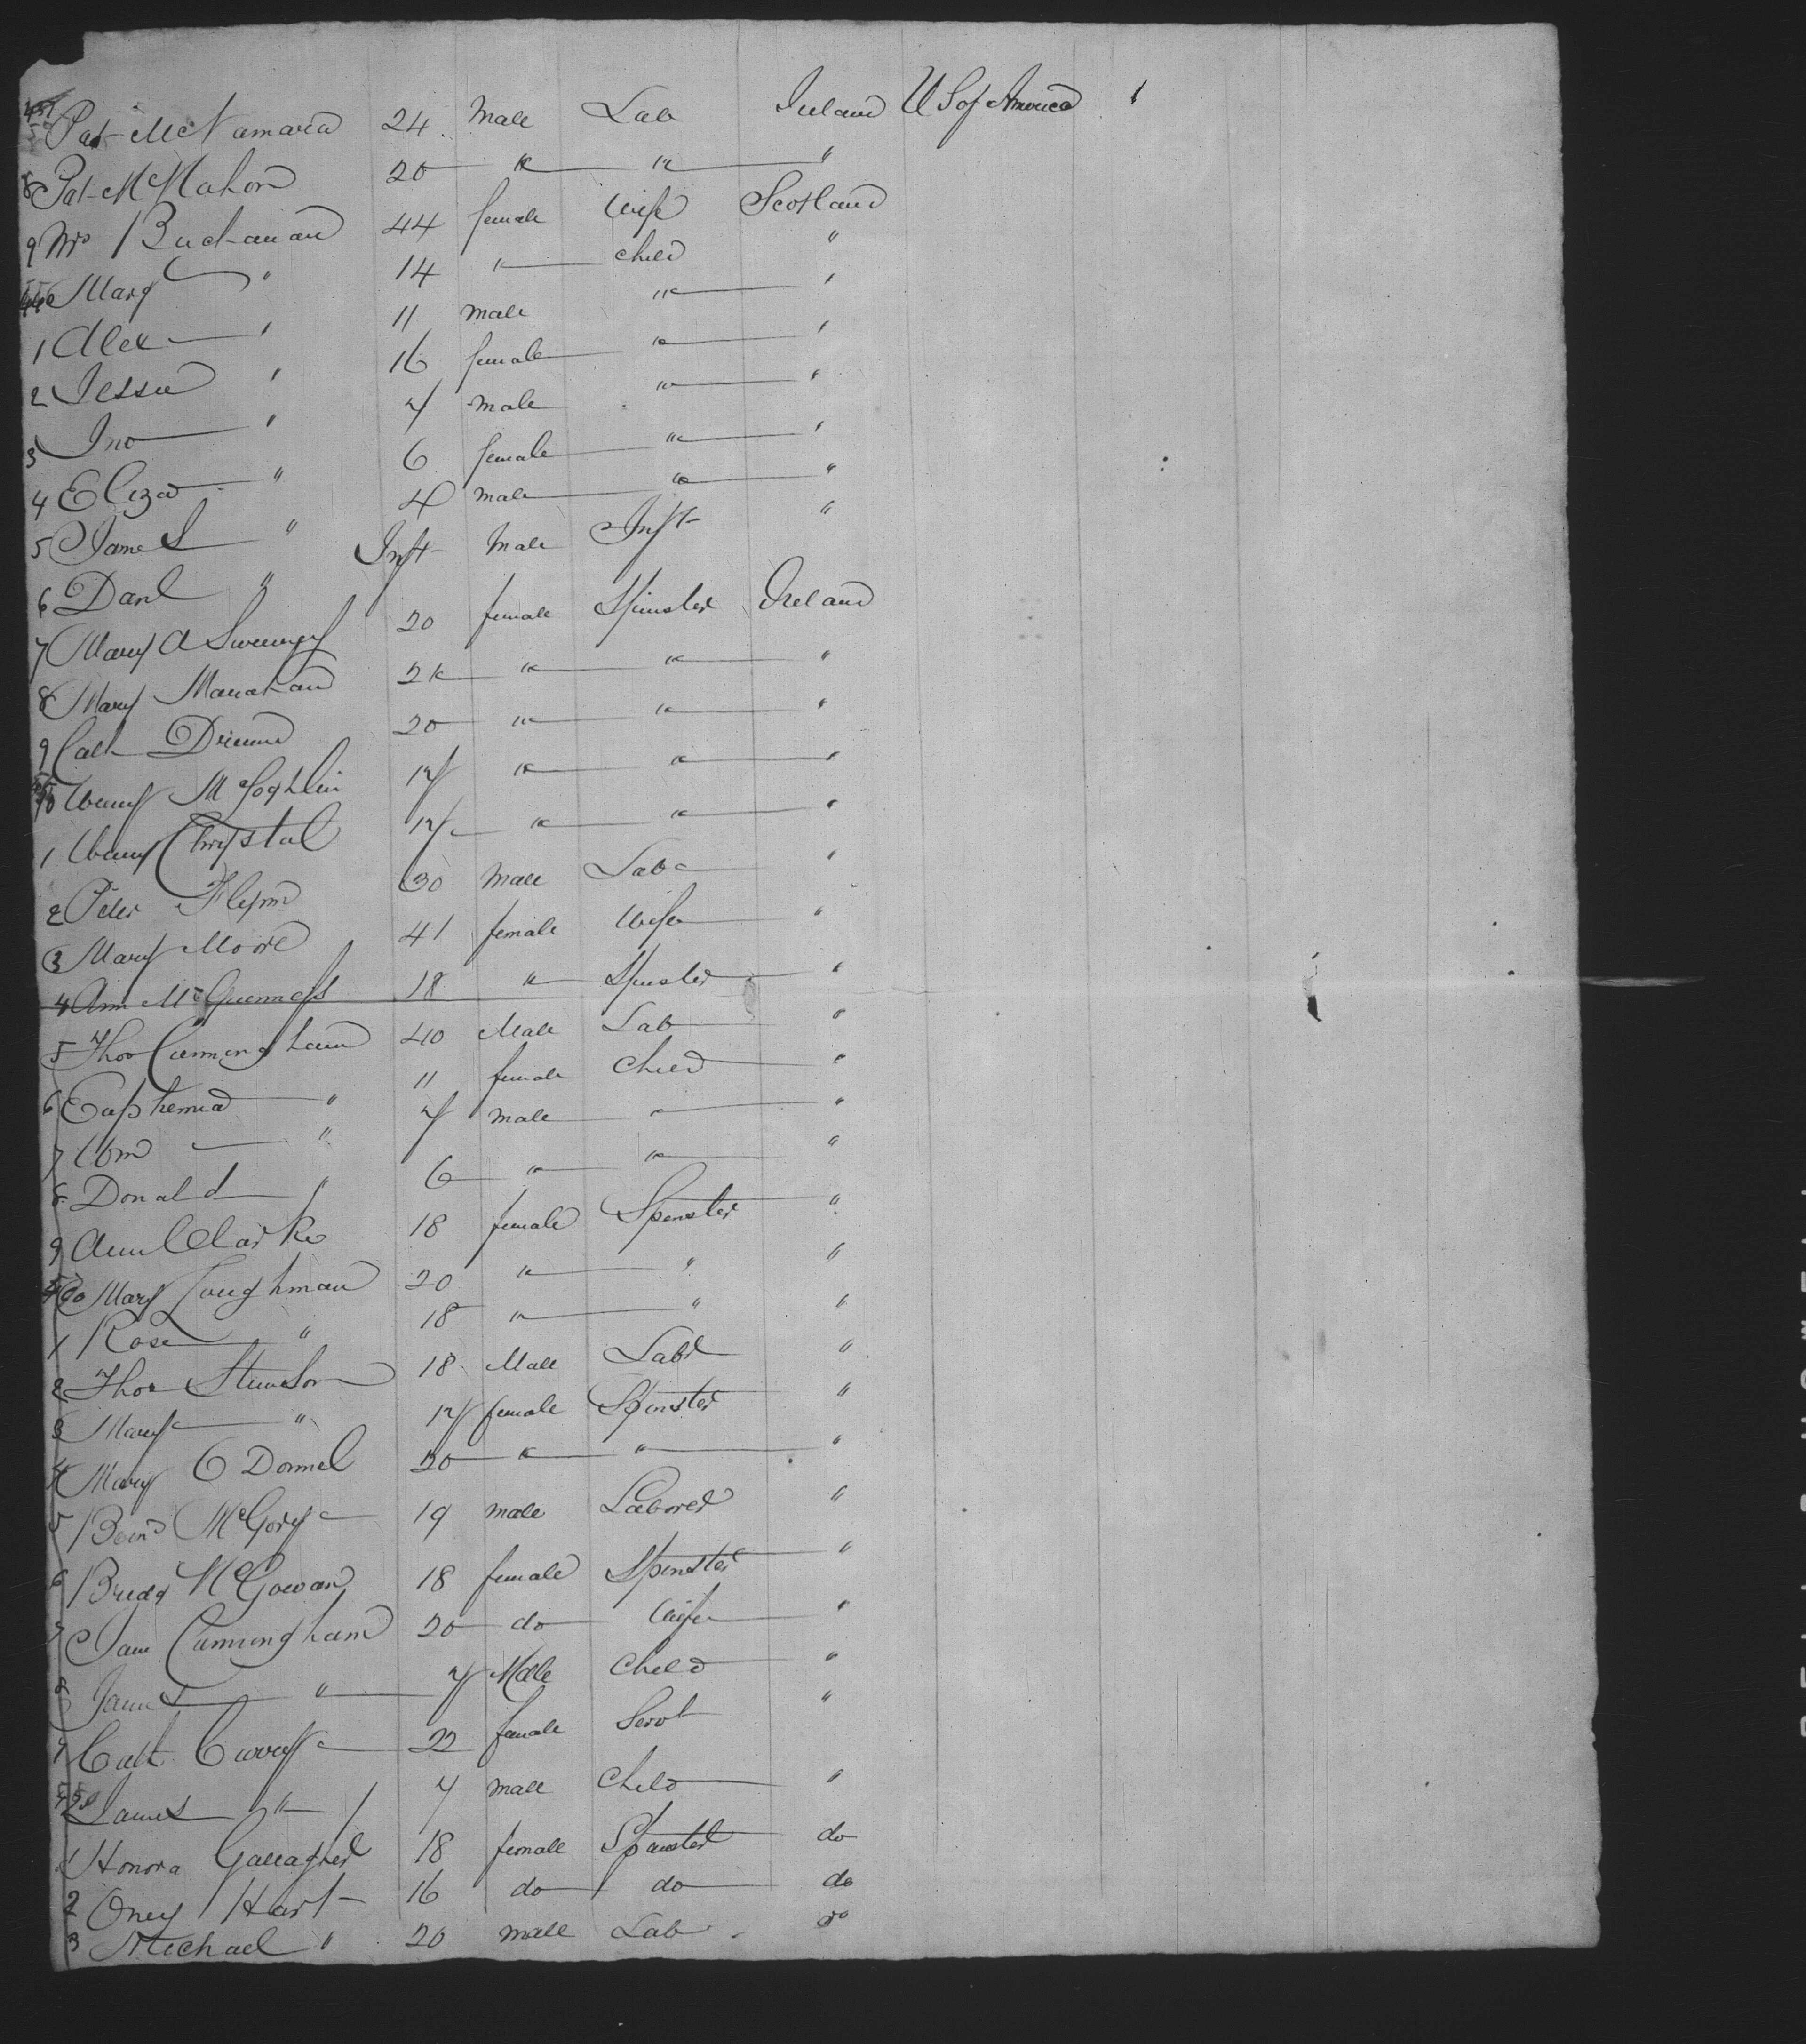 Pat McNamara 24 Male Lab Ireland U S of America
8 Pat McMahon 20 " " "
9 Mrs Buchanan 44 female Wife Scotland
Marg " 14 " child "
1 Alex " 11 male " "
2 Jessie " 16 female " "
3 Jno " 7 male " "
4 Eliza " 6 female " "
5 James " 4 male " "
6 Danl " Inft Male Inft "
7 Mary A Sweeney 20 female Spinster Ireland
8 Mary Manahan 2 " " "
9 Cath 20 " " "
50 McLoghlin 17 " " "
1 Chrystal 17 " " "
2 Peter Flynn 30 Male Lab "
3 Mary Moore 41 female Wife "
4 Ann McGuenness 18 " Spinster "
5 Thos Cunningham 40 Male Lab "
6 Euphemia " 11 female Child "
7 Wm " 7 male " "
8 Donald " 6 " " "
9 Ann Clarke 18 female Spinster "
60 Mary Loughman 20 " " "
1 Rose " 18 " " "
2 Thos Stimson 18 Male Labr "
3 Mary " 17 female Spinster "
4 Mary O Donnel 20 " " "
5 Bernd McGory 19 male Laborer "
6 Bridg McGowan 18 female Spinster "
7 Jam Cunningham 20 do Wife "
8 James " 7 Male Child "
9 Cath Curry 22 female Servt "
James " 4 male Child "
1 Honora Gallagher 18 female Spinster do
2 Oney Hart 16 do do do
3 Michael " 20 male Lab do